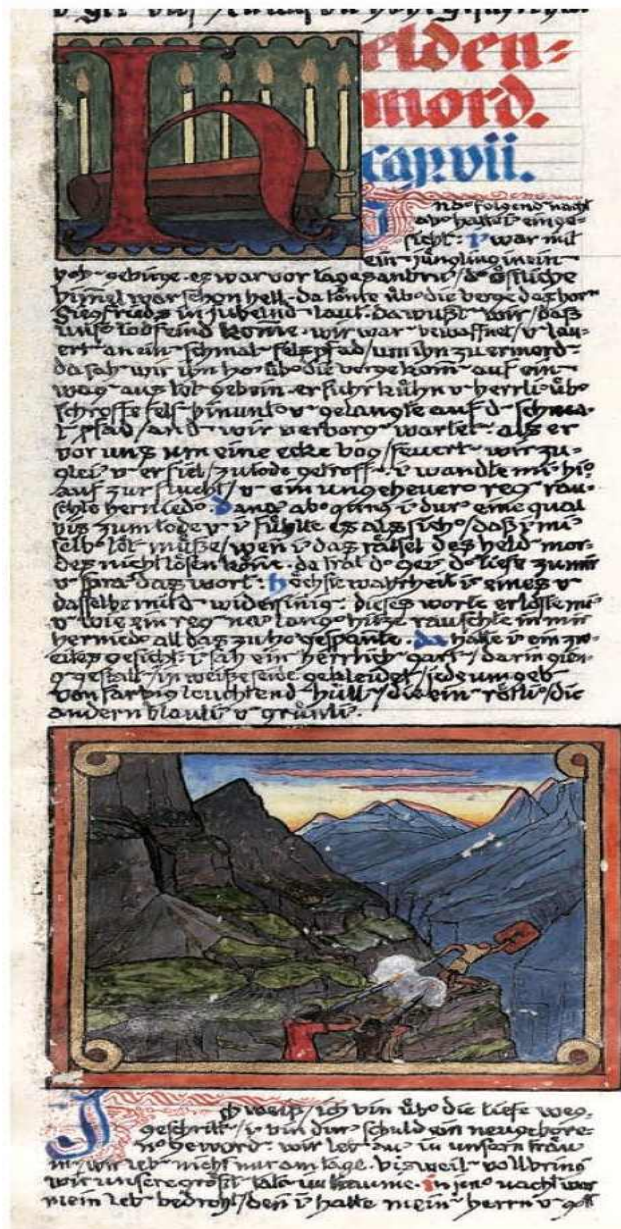 Helden=
mord.
cap. vii.
In do folgend nacht
abo hatte i ein ge-
sicht: i war mit
ein jüngling in ein
hoh gebirge. es war vor tagesanbru / do östliche
himel war schon hell. da tönte übo die berge das horn
Siegfrieds in jubelnd laut. da wußt wir / daß
unse todfeind kome. wir war bewaffnet / v lau-
ert an ein schmal felspfad / um ihn zu ermord.
da sah wir ihn ho übo die berge kom auf ein
wag aus tot gebein. er fuhr kühn v herrli übo
schroffe fels hinunto v gelangte auf d schma-
l pfad / and wir verborg wartet. als er
vor uns um eine ecke bog / feuert wir zu-
glei v er fiel / zu tode getroff. i wandte mi hio
auf zur flucht / v ein ungeheuero reg rau-
schte herniedo. dana abo ging i dur eine qual
bis zum tode v i fühlte es als sicho / daß i mi
selb töt müße / wen i das rätsel des held mor-
des nicht lösen köne. da trat do gei do tiefe zu mir
v spra das wort: höchste wahrheit i eines v
dasselbe mit d widersinig: dieses worte erlöste mi
v wie ein reg na lango hitze rauschte in mir
herniedo all das zu ho gespante. da hatte i ein zw-
eites gesicht: i sah ein herrlich gart / darin gien-
g gestalt / in weiße seide gekleidet / jede umgeb
von farbig leuchtend hüll / die ein rötli / die
andern blauli v grünli.
Ich weiß / ich bin übo die tiefe weg-
geschritt / i bin dur schuld ein neugebore-
no geword. wir leb au in unsern träu
m / wir leb nicht nur am tage. bisweil vollbring
wir unsere größt tat im traume. in jeno nacht war
mein leb bedroht / den i hatte mein herrn v gott